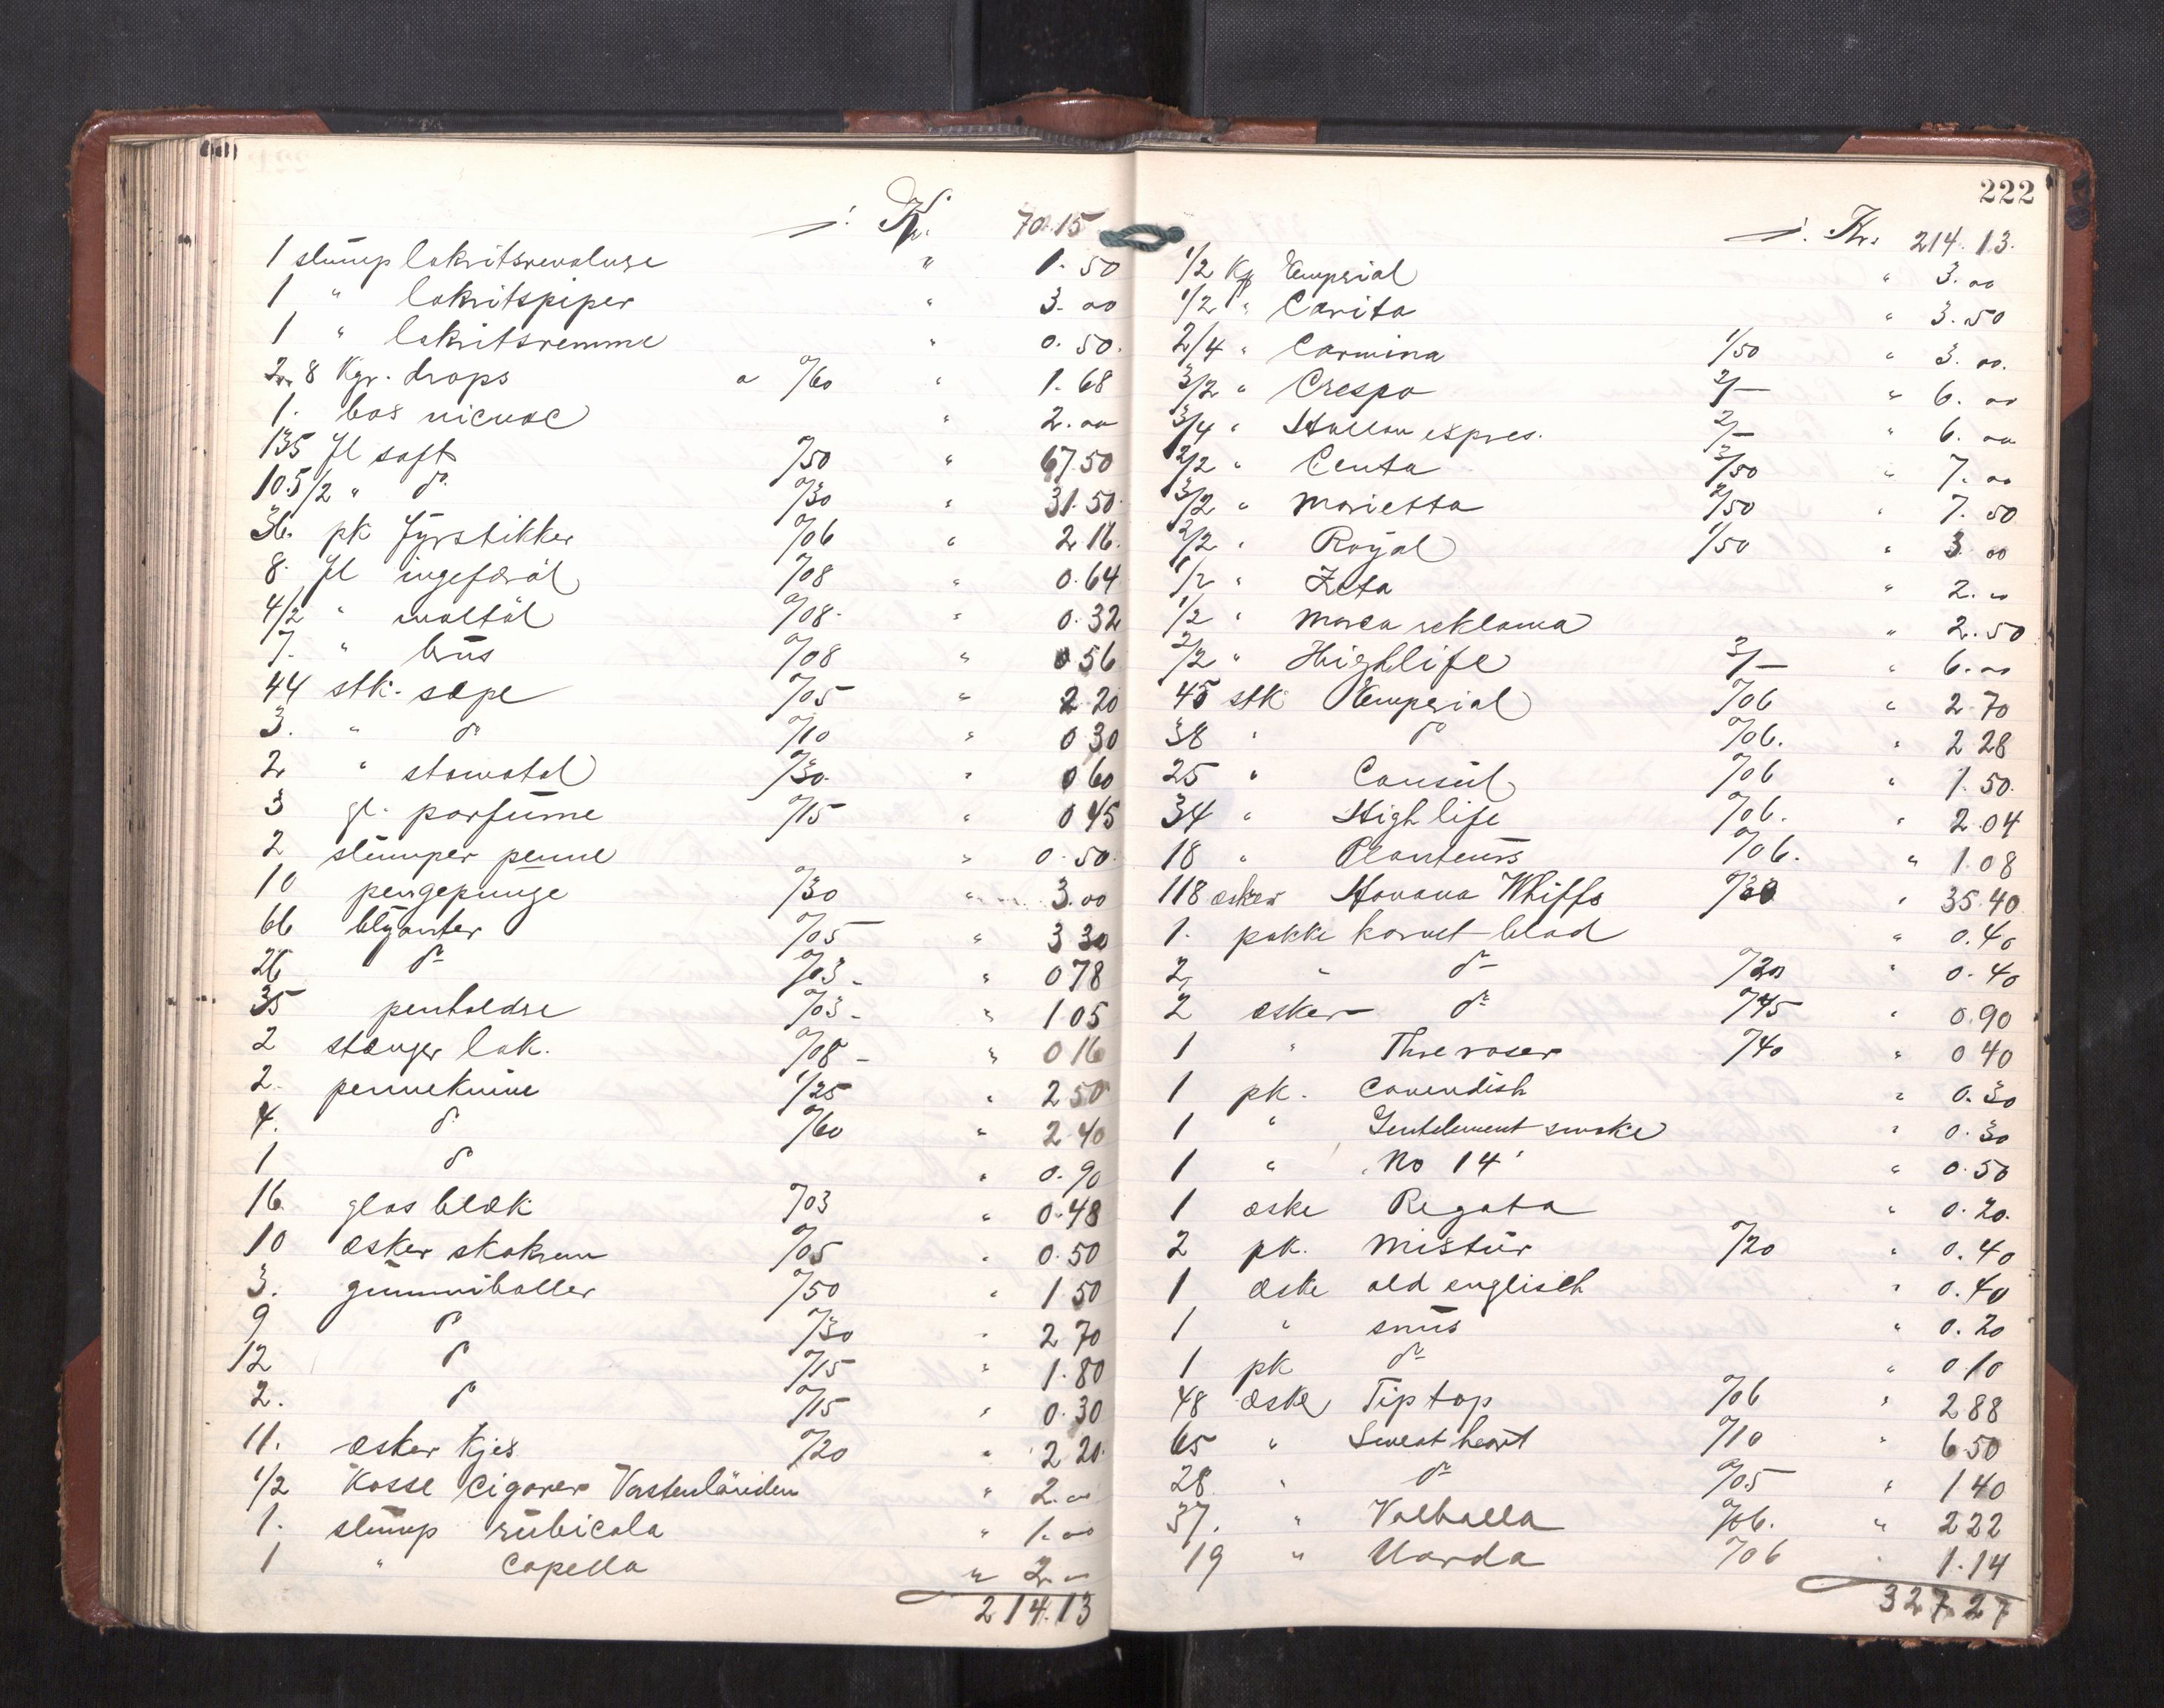 ./. Kr. 70.15
1 slump lakritsrevolvere " 1.50
1 " lakritspiper " 3.00
1 " lakritsremme " 0.50.
2.8 Kgr. drops a 0/60 " 1.68
1. kas " 2.00
135 fl saft 0/50 " 67.50
105/2 " do 0/30 " 31.50.
36. pk fyrstikker 0/06 " 2.16.
8. fl ingeføröl 0/08 " 0.64
4/2 " maltöl 0/08. " 0.32
7. " brus 0/08 " 0 56
44 stk. sæpe 0/05 " 2 20
3. " do 0/10 " 0 30
2 " stomatol 0/30. " 0 60
3 gl. parfume 0/15 " 0 45
2 slumper penne " 0.50.
10 pengepunge 0/30 " 3.00
66 blyanter 0/05 " 3 30
26 do 0/03 - " 0 78
35 penholdre 0/03 - " 1 05
2 stænger lak. 0/08 - " 0 16
2. penneknive 1/25 " 2 50
4. do 0/60 " 2 40
1 do " 0.90
16. glas blæk 0/03 " 0.48
10 æsker skokrem 0/05 " 0.50
3. gummiballer 0/50 " 1 50
9 do 0/30 " 2 70
12 do 0/15 " 1.80
2. do 0/15 " 0.30
11. æsker kjes 0/20 " 2 20.
1/2 kasse cigarer " 2.00
1. slump rubicola " 1.00
1 " Capella " 2.00
214.13
222
./. Kr. 214.13.
1/2 Kg Emperial " 3.00
1/2 " Carita " 3.50
2/4 " Carmina 1/50 " 3.00.
3/2 " Crespo 2/— " 6.00
3/4 " expres. 2/— " 6.00
2/2 " Centa 3/50 " 7.00
3/2 " Marietta 2/50 " 7.50
2/2 " Royal 1/50 " 3 00
1/2 " Zeta " 2.00
1/2 " reklama " 2.50
2/2 " Highlife 3/— " 6.00
45 stk Emperial 0/06 " 2 70
38 " do 0/06. " 2 28
25 " Consul 0/06 " 1.50.
34 " High life 0/06. " 2.04
18 " Planteurs 0/06. " 1.08
118 æsker Havana Whiffs 0/30 " 35.40
1. pakke karvet blad " 0.40
2 " do 0/20 " 0.40
2 æsker do 0/45 " 0.90
1 " Thre roser 0/40 " 0 40
1 pk. Cavendish " 0.30
1 " Gentelement smoke " 0.30
1 " No 14 " 0.50
1 æske Regata " 0.20.
2 pk. Mistur 0/20 " 0.40
1 æske old englisch " 0.40
1 " snus " 0.20
1 pk do " 0 10
48 æske Tip top 0/06 " 2 88
65 " Sweat heart 0/10 " 6 50
28 " do 0/05 " 1 40
37. " Valhalla 0/06. " 2 22
19 " Uarda 0/06 " 1.14
327.27